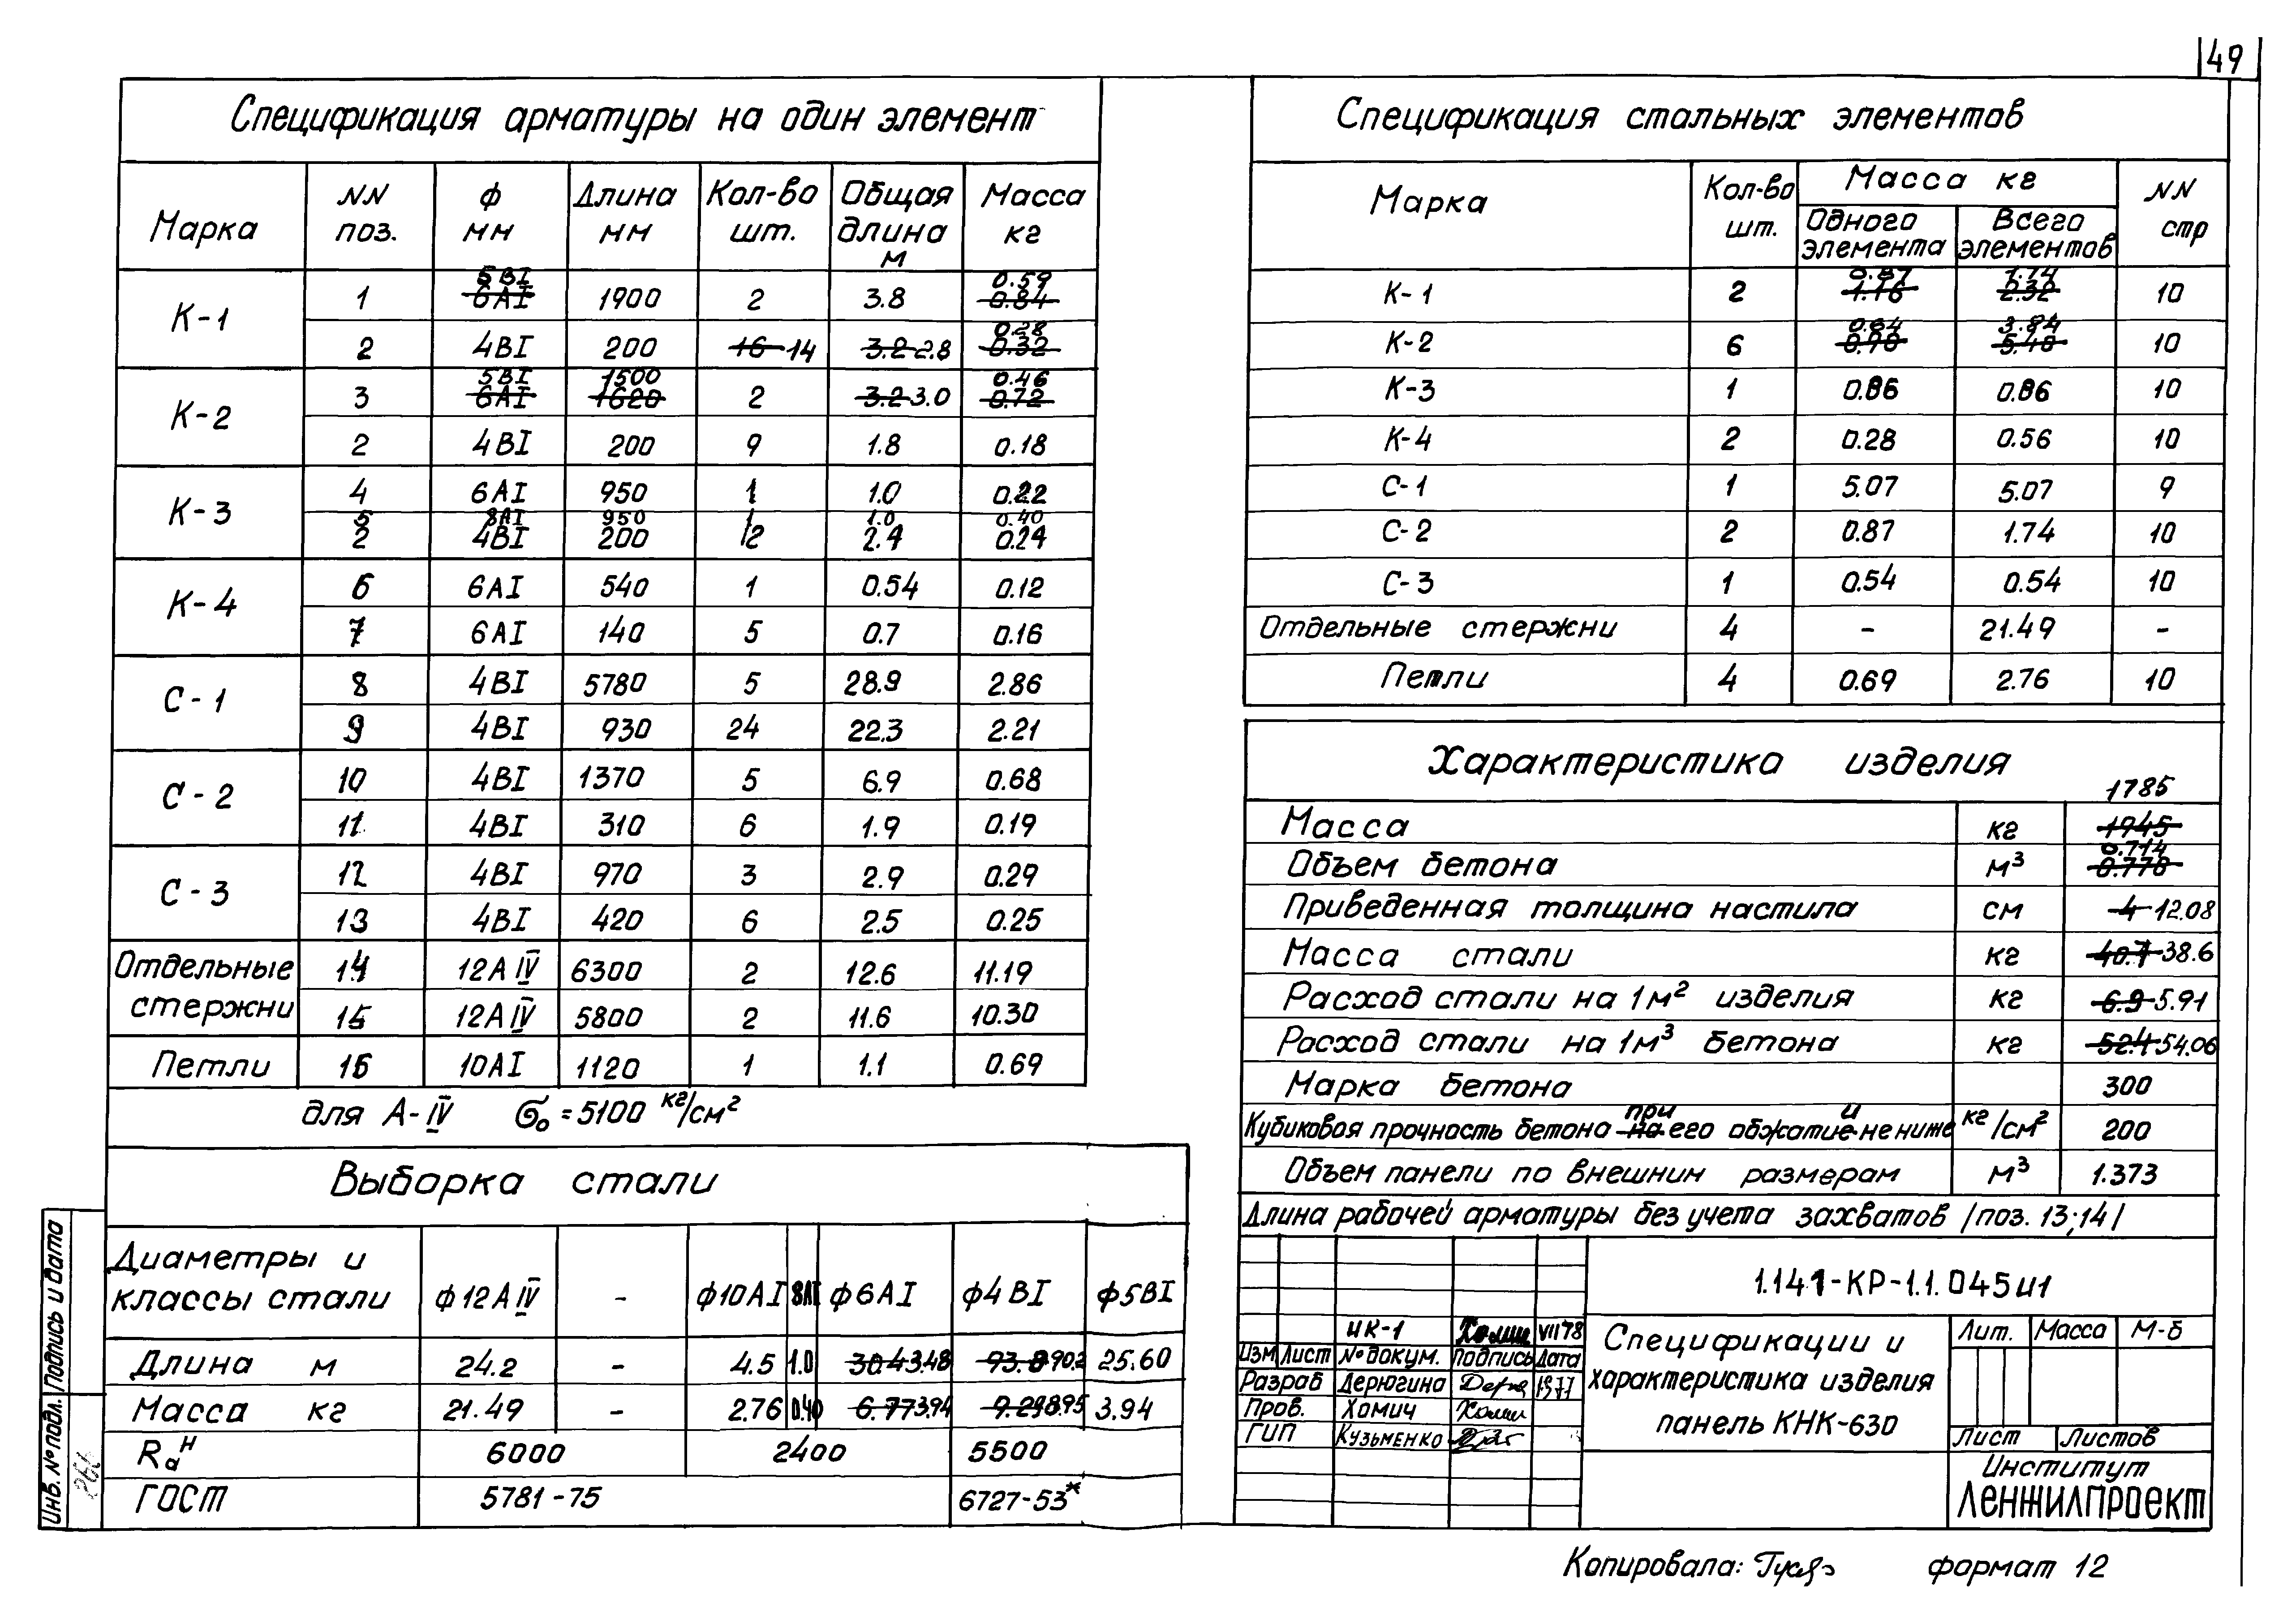 49
Спецификация арматуры на один элемент
Марка | NN поз. | ф мм | Длина мм | Кол-во шт. | Общая длина м | Масса кг
К-1 | 1 | 5ВI 6АI | 1900 | 2 | 3.8 | 0.59 0.84
2 | 4ВI | 200 | 16 14 | 3.2 2.8 | 0.28 0.32
К-2 | 3 | 5ВI 6АI | 1500 1620 | 2 | 3.2 3.0 | 0.46 0.72
2 | 4ВI | 200 | 9 | 1.8 | 0.18
К-3 | 4 | 6АI | 950 | 1 | 1.0 | 0.22
5 | 8АI | 950 | 1 | 1.0 | 0.40
2 | 4ВI | 200 | 12 | 2.4 | 0.24
К-4 | 6 | 6АI | 540 | 1 | 0.54 | 0.12
7 | 6АI | 140 | 5 | 0.7 | 0.16
С-1 | 8 | 4ВI | 5780 | 5 | 28.9 | 2.86
9 | 4ВI | 930 | 24 | 22.3 | 2.21
С-2 | 10 | 4ВI | 1370 | 5 | 6.9 | 0.68
11 | 4ВI | 310 | 6 | 1.9 | 0.19
С-3 | 12 | 4ВI | 970 | 3 | 2.9 | 0.29
13 | 4ВI | 420 | 6 | 2.5 | 0.25
Отдельные стержни | 14 | 12А IV | 6300 | 2 | 12.6 | 11.19
15 | 12А IV | 5800 | 2 | 11.6 | 10.30
Петли | 16 | 10АI | 1120 | 1 | 1.1 | 0.69
для А-IV σ₀ = 5100 кг/см²
Выборка стали
Диаметры и классы стали | ф12А IV | - | ф10АI | 8АI | ф6АI | ф4ВI | ф5ВI
Длина м | 24.2 | - | 4.5 | 1.0 | 30.4 3.48 | 93.8 90.2 | 25.60
Масса кг | 21.49 | - | 2.76 | 0.40 | 6.77 3.94 | 9.29 8.95 | 3.94
Rан | 6000 | 2400 | 5500
ГОСТ | 5781-75 | 6727-53*
Инв. № подл. | Подпись и дата
Спецификация стальных элементов
Марка | Кол-во шт. | Масса кг | Одного элемента | Всего элементов | NN стр
К-1 | 2 | 0.87 1.16 | 1.74 2.32 | 10
К-2 | 6 | 0.64 0.90 | 3.84 5.40 | 10
К-3 | 1 | 0.86 | 0.86 | 10
К-4 | 2 | 0.28 | 0.56 | 10
С-1 | 1 | 5.07 | 5.07 | 9
С-2 | 2 | 0.87 | 1.74 | 10
С-3 | 1 | 0.54 | 0.54 | 10
Отдельные стержни | 4 | - | 21.49 | -
Петли | 4 | 0.69 | 2.76 | 10
Характеристика изделия
Масса | кг | 1785 1945
Объем бетона | м³ | 0.714 0.778
Приведенная толщина настила | см | 4 12.08
Масса стали | кг | 40.7 38.6
Расход стали на 1м² изделия | кг | 6.9 5.91
Расход стали на 1м³ бетона | кг | 52.4 54.06
Марка бетона | 300
Кубиковая прочность бетона на при его обжатие и не ниже | кг/см² | 200
Объем панели по внешним размерам | м³ | 1.373
Длина рабочей арматуры без учета захватов /поз. 13;14/
1.141-КР-1.1.045и1
ИК-1 | VII 78
Изм | Лист | № докум. | Подпись | Дата
Разраб | Дерюгина | 1977
Пров. | Хомич
ГИП | Кузьменко
Спецификации и
характеристика изделия
панель КНК-630
Лит. | Масса | М-б
Лист | Листов
Институт
ЛЕНЖИЛПРОЕКТ
Копировала: формат 12